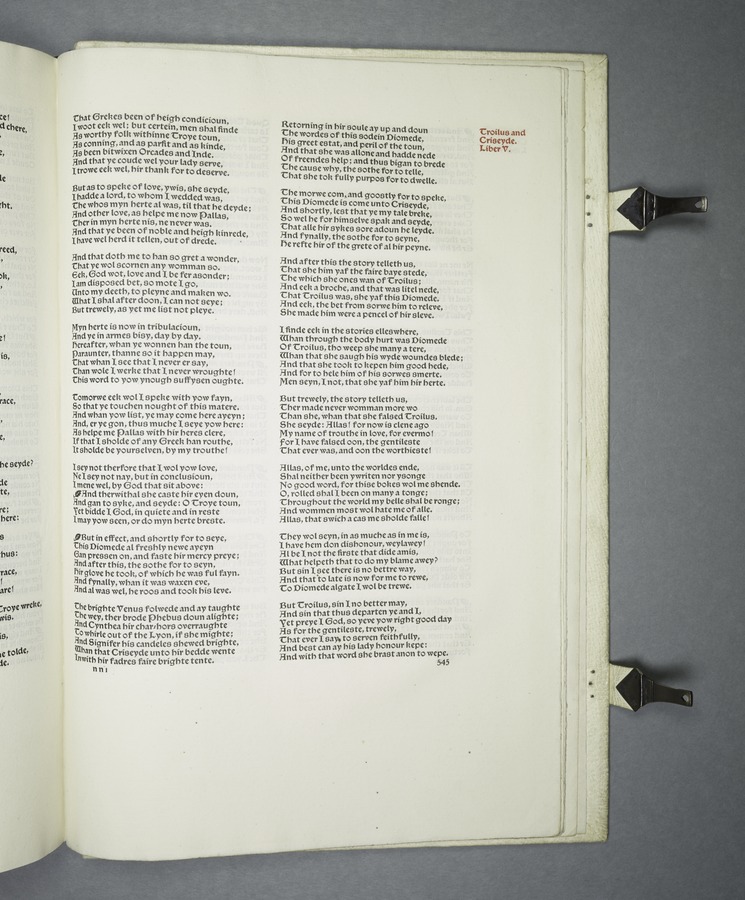 ce!
d chere,
ht,
reed,
ok,
e!
is,
race,
he seyde?
de
te,
re;
here:
s
hus:
race,
!
are!
Troye wreke,
wis,
is,
e tolde,
de.
That Grekes been of heigh condicioun,
I woot eek wel; but certein, men shal finde
As worthy folk withinne Troye toun,
As conning, and as parfit and as kinde,
As been bitwixen Orcades and Inde.
And that ye coude wel your lady serve,
I trowe eek wel, hir thank for to deserve.
But as to speke of love, ywis, she seyde,
I hadde a lord, to whom I wedded was,
The whos myn herte al was, til that he deyde;
And other love, as helpe me now Pallas,
Ther in myn herte nis, ne never was.
And that ye been of noble and heigh kinrede,
I have wel herd it tellen, out of drede.
And that doth me to han so gret a wonder,
That ye wol scornen any womman so.
Eek, God wot, love and I be fer asonder;
I am disposed bet, so mote I go,
Unto my deeth, to pleyne and maken wo.
What I shal after doon, I can not seye;
But trewely, as yet me list not pleye.
Myn herte is now in tribulacioun,
And ye in armes bisy, day by day.
Hereafter, whan ye wonnen han the toun,
Paraunter, thanne so it happen may,
That whan I see that I never er say,
Than wole I werke that I never wroughte!
This word to yow ynough suffysen oughte.
Tomorwe eek wol I speke with yow fayn,
So that ye touchen nought of this matere.
And whan yow list, ye may come here ayeyn;
And, er ye gon, thus muche I seye yow here:
As helpe me Pallas with hir heres clere,
If that I sholde of any Greek han routhe,
It sholde be yourselven, by my trouthe!
I sey not therfore that I wol yow love,
Ne I sey not nay, but in conclusioun,
I mene wel, by God that sit above:
And therwithal she caste hir eyen doun,
And gan to syke, and seyde: O Troye toun,
Yet bidde I God, in quiete and in reste
I may yow seen, or do myn herte breste.
But in effect, and shortly for to seye,
This Diomede al freshly newe ayeyn
Gan pressen on, and faste hir mercy preye;
And after this, the sothe for to seyn,
Hir glove he took, of which he was ful fayn.
And fynally, whan it was waxen eve,
And al was wel, he roos and took his leve.
The brighte Venus folwede and ay taughte
The wey, ther brode Phebus doun alighte;
And Cynthea hir char-hors overraughte
To whirle out of the Lyon, if she mighte;
And Signifer his candeles shewed brighte,
Whan that Criseyde unto hir bedde wente
Inwith hir fadres faire brighte tente.
nn1
Retorning in hir soule ay up and doun
The wordes of this sodein Diomede,
His greet estat, and peril of the toun,
And that she was allone and hadde nede
Of freendes help; and thus bigan to brede
The cause why, the sothe for to telle,
That she tok fully purpos for to dwelle.
The morwe com, and goostly for to speke,
This Diomede is come unto Criseyde,
And shortly, lest that ye my tale breke,
So wel he for himselve spak and seyde,
That alle hir sykes sore adoun he leyde.
And fynally, the sothe for to seyne,
He refte hir of the grete of al hir peyne.
And after this the story telleth us,
That she him yaf the faire baye stede,
The which she ones wan of Troilus;
And eek a broche, and that was litel nede,
That Troilus was, she yaf this Diomede.
And eek, the bet from sorwe him to releve,
She made him were a pencel of hir sleve.
I finde eek in the stories elleswhere,
Whan through the body hurt was Diomede
Of Troilus, tho weep she many a tere,
Whan that she saugh his wyde woundes blede;
And that she took to kepen him good hede,
And for to hele him of his sorwes smerte.
Men seyn, I not, that she yaf him hir herte.
But trewely, the story telleth us,
Ther made never womman more wo
Than she, whan that she falsed Troilus.
She seyde: Allas! for now is clene ago
My name of trouthe in love, for evermo!
For I have falsed oon, the gentileste
That ever was, and oon the worthieste!
Allas, of me, unto the worldes ende,
Shal neither been ywriten nor ysonge
No good word, for thise bokes wol me shende.
O, rolled shal I been on many a tonge;
Throughout the world my belle shal be ronge;
And wommen most wol hate me of alle.
Allas, that swich a cas me sholde falle!
They wol seyn, in as muche as in me is,
I have hem don dishonour, weylawey!
Al be I not the firste that dide amis,
What helpeth that to do my blame awey?
But sin I see there is no bettre way,
And that to late is now for me to rewe,
To Diomede algate I wol be trewe.
But Troilus, sin I no better may,
And sin that thus departen ye and I,
Yet preye I God, so yeve yow right good day
As for the gentileste, trewely,
That ever I say, to serven feithfully,
And best can ay his lady honour kepe:
And with that word she brast anon to wepe.
545
Troilus and
Criseyde.
Liber V.